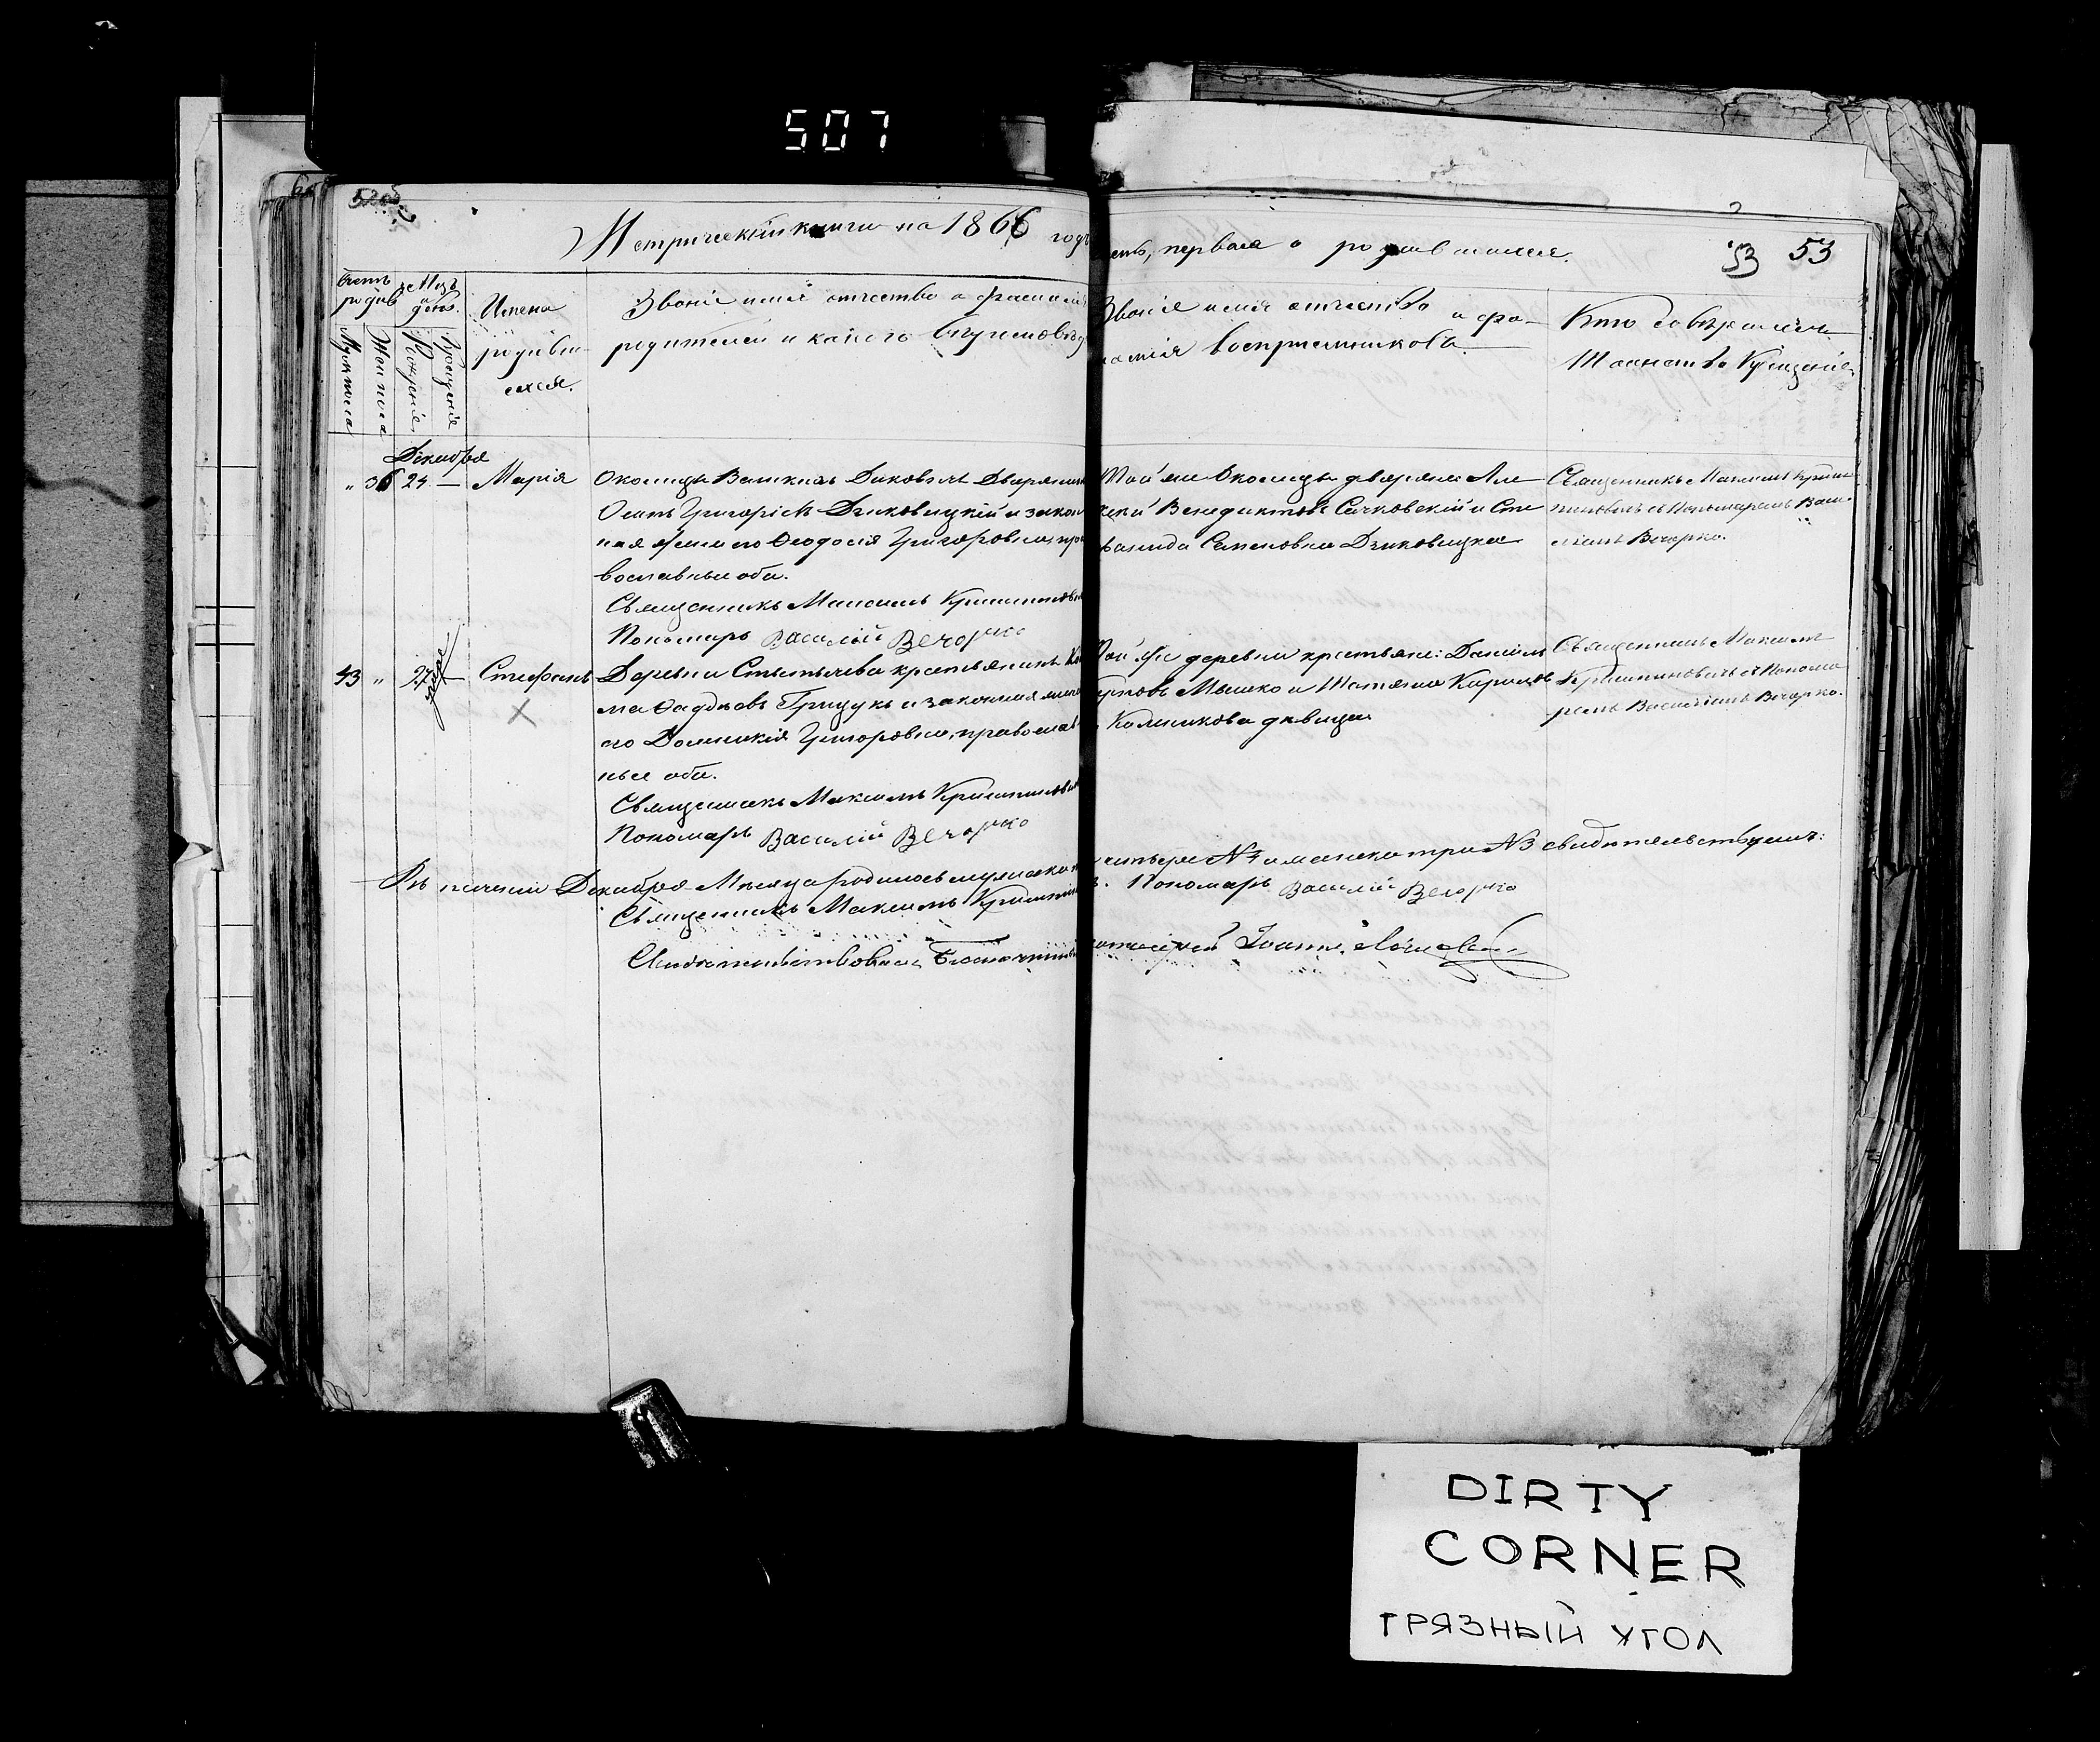 507
Метрической книги на 1866 годъ
часть, первая о родившихся.
53 53
Счетъ родив
Муж пола
Жен пола
Мѣс. и день.
Рожденія
Крещенія
Имена
родивши
хся.
Званіе имя отчество и фамилія
родителей и какого вѣроисповѣд
Званіе имя отчество и фа-
милія воспріемниковъ.
Кто совершалъ
Таинство Крещенія
Декабря
" 36 24 — Марія
Околицы Дворянинъ
Осипъ Григорьевъ Дзиковицкій и закон
ная жена его Ѳеодосія Григоровна, пра
вославные оба.
Священникъ Максимъ
Пономарь Василій Вечорко
Той же Околицы дворяне Але
ксей Венедиктовъ Сачковскій и Сте
фанида Семеновна Дзиковицка
Священникъ Максимъ
съ Пономаремъ Васи
ліемъ Вечорко.
43 " 27 — Стефанъ
Деревни крестьянинъ
Ѳаддѣевъ Грицукъ и законная жена
его Домникія Григоровна, православ
ные оба.
Священникъ Максимъ
Пономарь Василій Вечорко
Той же деревни крестьяне: Даніилъ
Мышко и Татьяна
Калникова дѣвица
Священникъ Максимъ
съ Понома
ремъ Василіемъ Вечорко.
Въ теченіи Декабря Мѣсяца родилось мужеска
четыре № 4 а женска три № 3 свидѣтельствуемъ:
Священникъ Максимъ
Пономарь Василій Вечорко
Свидѣтельствовалъ Благочинный
Іоаннъ
DIRTY
CORNER
ГРЯЗНЫЙ УГОЛ